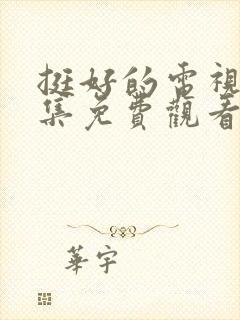 挺好的電視
集免費觀看
華宇